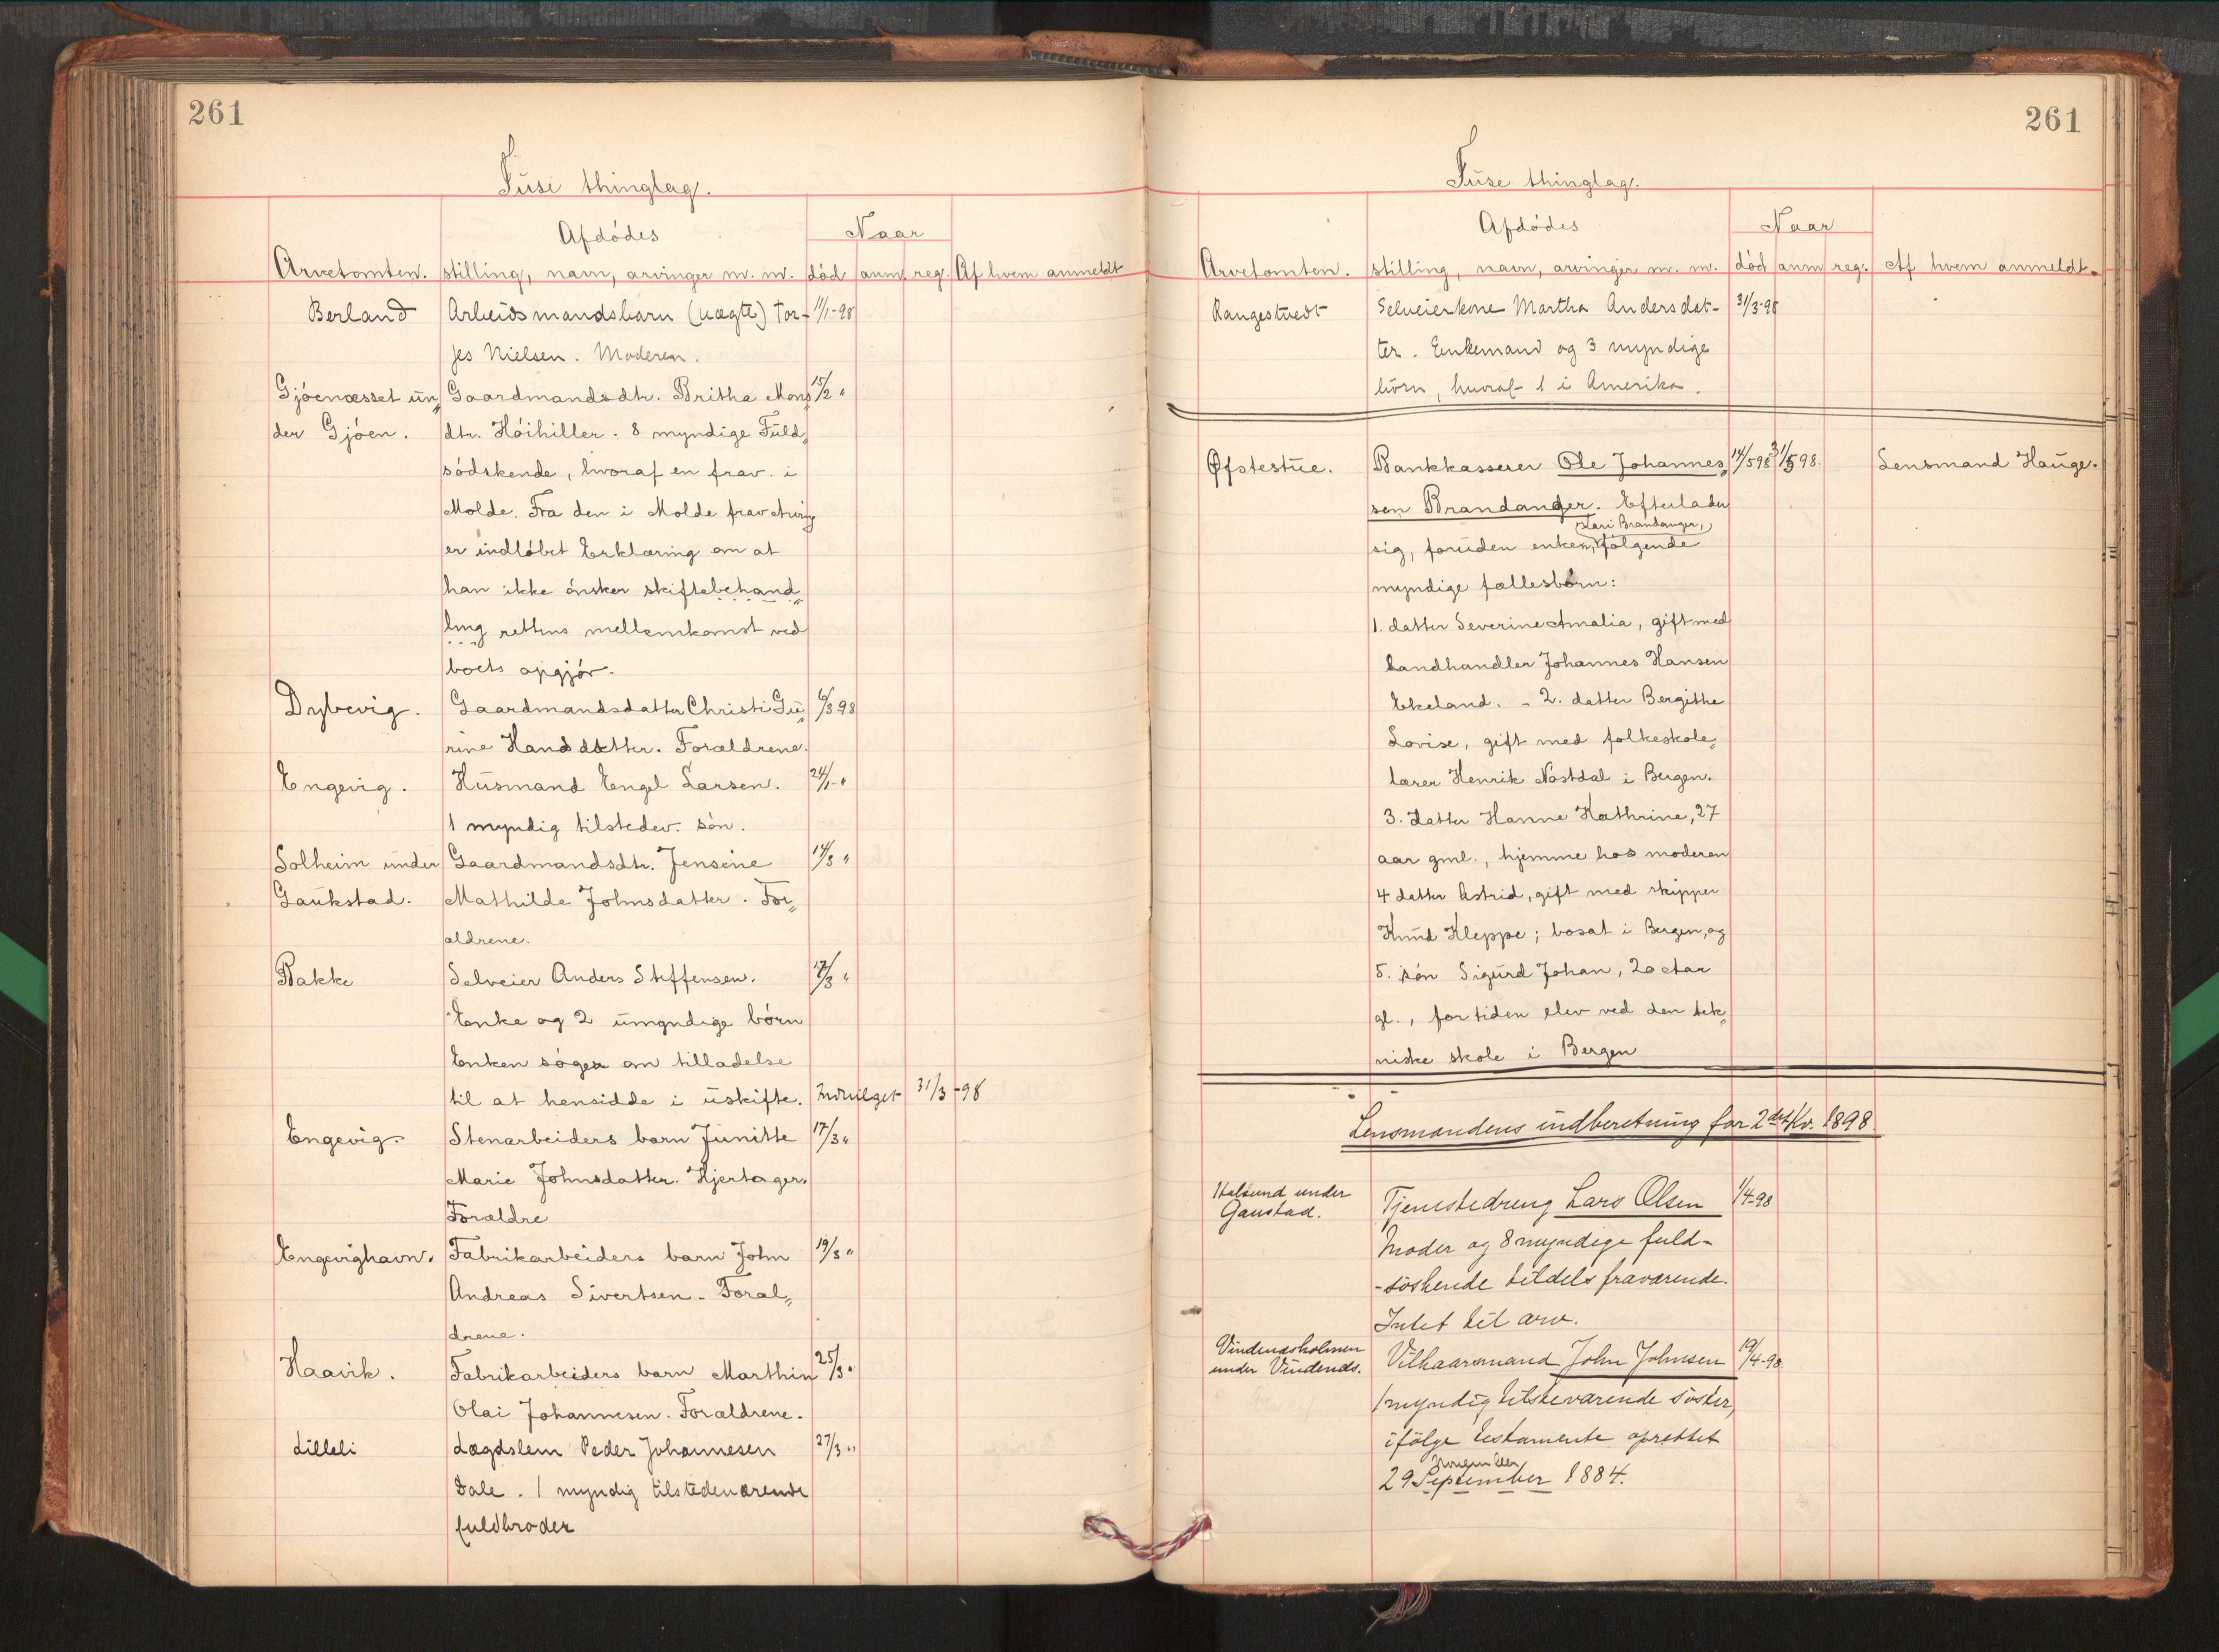 261
Fuse thinglag.
Afdödes
Naar
Arvetomten. stilling, navn, arvinger m. m. död anm. reg. Af hvem anmeldt
Berland Arbeidsmandsbarn (uægte) Tor- 11/1-98
jes Nielsen. Moderen.
Gjöenæsset un„ Gaardmandsdtr. Britha Mons 15/2 "
der Gjöen. dtr. Höihiller. 8 myndige Fuld„
södskende, hvoraf en frav. i
Molde. Fra den i Molde frav Arving
er indlöbet Erklæring om at
han ikke önsker skiftebehand„
ling rettens mellemkomst ved
boets opgjör.
Dybvig. Gaardmandsdatter Christi Gu„ 6/3 98
rine Hansdatter. Forældrene.
Engevig. Husmand Engel Larsen. 24/1 - "
1 myndig tilstedev. sön.
Solheim under Gaardmandsdtr. Jensine 14/3 "
Gaukstad. Mathilde Johnsdatter. For„
ældrene.
Bakke Selveier Anders Steffensen. 17/3 "
Enke og 2 umyndige börn
Enken söger om tilladelse
til at hensidde i uskifte. Indvilget 31/3-98
Engevig. Stenarbeiders barn Junitte 17/3 "
Marie Johnsdatter. Hjertager.
Forældre
Engevighavn. Fabrikarbeiders barn John 19/3 "
Andreas Sivertsen - Foræl„
drene.
Haavik. Fabrikarbeiders barn Marthin 25/3 "
Olai Johannesen. Forældrene.
Lilleli Lægdslem Peder Johannesen 27/3 "
Dale. 1 myndig tilstedeværende
fuldbroder
261
Fuse thinglag.
Afdödes
Naar
Arvetomten. stilling, navn, arvinger m. m. död anm reg. Af hvem anmeldt.
Rangestvedt Selveierkone Martha Andersdat- 31/3-98
ter. Enkemand og 3 myndige
börn, hvoraf 1 i Amerika.
Øfstestue. Bankkasserer Ole Johannes„ 14/5 98 31/5 98. Lensmand Hauge.
sen Brandanger. Efterlader
Kari Brandanger,
sig, foruden enken, fölgende
myndige fællesbörn:
1. datter Severine Amalia, gift med
Landhandler Johannes Hansen
Ekeland. - 2. datter Bergithe
Lovise, gift med folkeskole„
lærer Henrik Nöstdal i Bergen.
3. datter Hanne Kathrine, 27
aar gml., hjemme hos moderen
4 datter Astrid, gift med skipper
Knud Kleppe; bosat i Bergen, og
5. sön Sigurd Johan, 20 Aar
gl., for tiden elev ved den tek„
niske skole i Bergen
Lensmandens indberetning for 2det Kv. 1898
Halsund under
Gaustad. Tjenestedreng Lars Olsen 1/4-98
Moder og 8 myndige fuld-
-söskende tildels fraværende.
Intet til arv.
Vindenæsholmen
under Vindenæs. Vilkaarsmand John Johnsen 19/4-98
1 myndig tilsteværende söster,
ifölge testamente oprettet
November
29 September 1884.